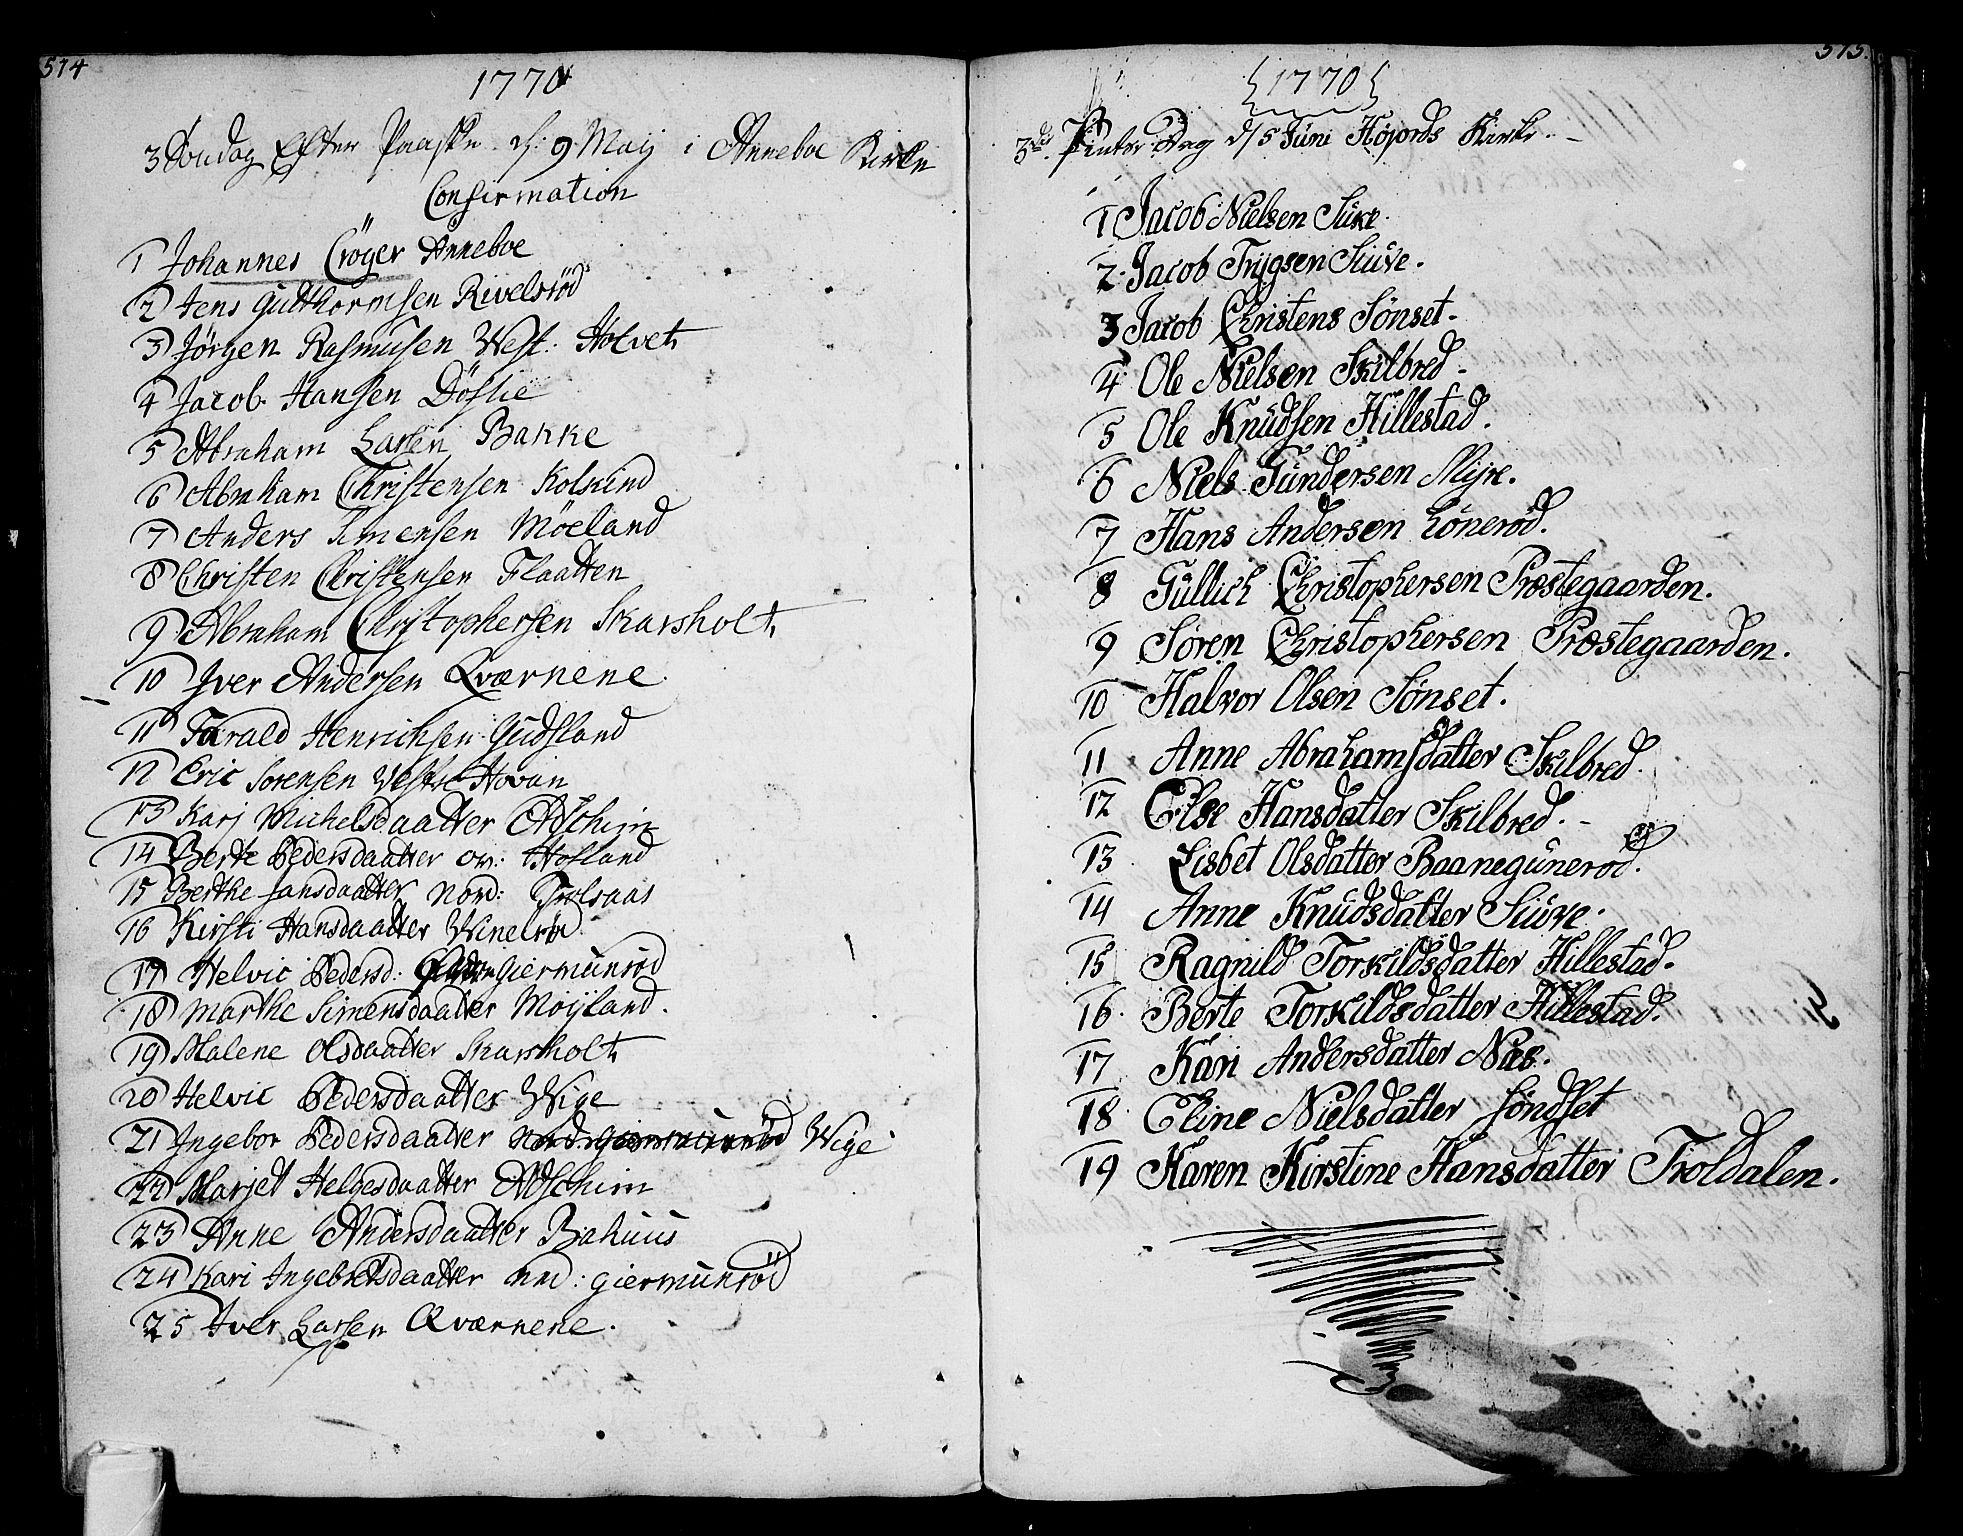 574
1770
3 Søndag Efter Paaske d: 9 Maij i Anneboe Kirke
Confirmation
1 Johannes Cröger Anneboe
2 Jens Gutthormsen Rivelsröd
3 Jörgen Rasmusen West: Holvet
4 Jacob Hansen Döslie
5 Abraham Larsen Bakke
6 Abraham Christensen Kolskind
7 Anders Simensen Möeland
8 Christen Christensen Flaatten
9 Abraham Christophersen Skarsholt
10 Iver Andersen Qværnene
11 Harald Henrichsen Gudsland
12 Eric Sorensen Vestre Hovan
13 Karj Michelsdaatter Adschim
14 Berte Pedersdaatter ov: Hofland
15 Berthe Jansdaatter Nord: Trolsaas
16 Kirsti Hansdaatter Winelröd
17 Helvic Pedersd: Giermunröd
18 Marthe Simensdaatter Möyland.
19 Malene Olsdaatter Skarsholt
20 Helvic Pedersdaatter Wige
21 Ingebor Pedersdaatter Nord: Giermunröd Wige
22 Marjet Helgesdaatter Adschim
23 Anne Andersdaatter Bahuus
24 Kari Ingebretsdaatter nrd: giermunröd
25 Iver Larsen Qværnene.
575.
1770
3die Pintse Dag d/5 Juni Höjords Kirke.
1 Jacob Nielsen Siüve.
2. Jacob Trygsen Siüve.
3 Jacob Christens Sønset.
4 Ole Nielsen Skilbred.
5 Ole Knüdsen Hillestad.
6 Niels Gündersen Myre.
7 Hans Andersen Lönerød.
8 Güllich Christophersen Præstegaarden.
9 Søren Christophersen Præstegaarden.
10 Halvor Olsen Sønset.
11 Anne Abrahamsdatter Skilbred.
12 Else Hansdatter Skilbred.
13 Lisbet Olsdatter Baanegünerød.
14 Anne Knüdsdatter Siüve.
15 Ragnild Torkildsdatter Hillestad.
16. Berte Torkildsdatter Hillestad.
17 Kari Andersdatter Næs.
18. Eline Nielsdatter Söndset
19 Karen Kirstine Hansdatter Troldalen.